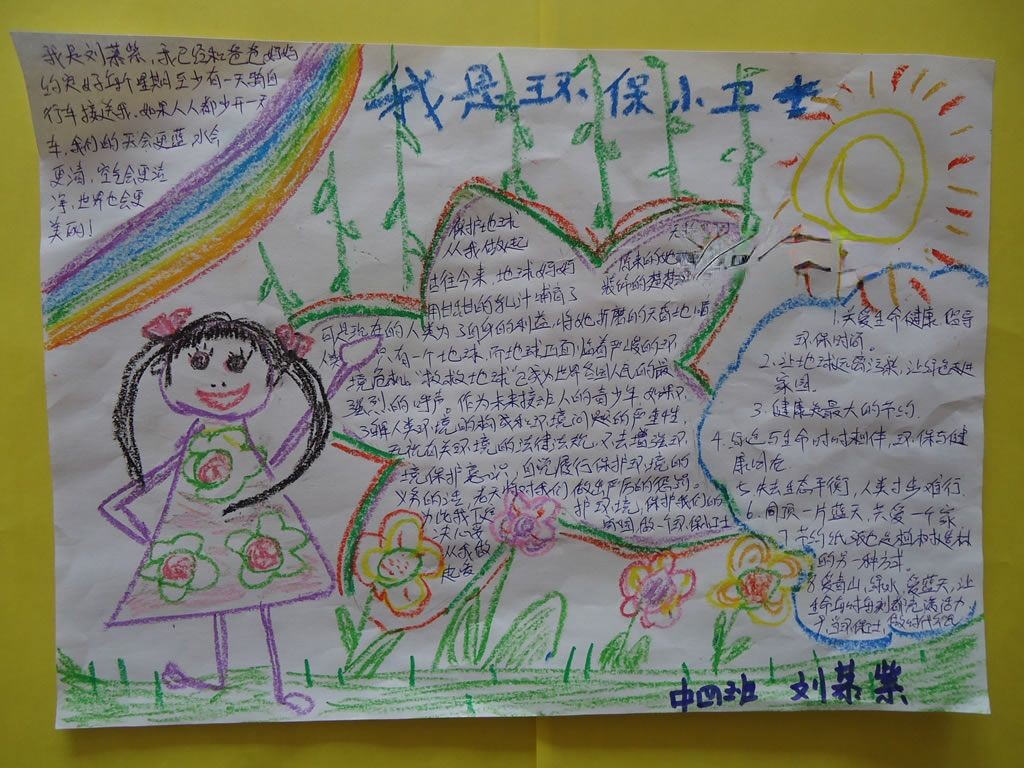 我是环保小卫士
我是刘慕紫，我已经和爸爸妈妈
约定好每个星期至少有一天骑自
行车接送我，如果人人都少开一天
车，我们的天会更蓝，水会
更清，空气会更洁
净，世界也会更
美丽！
保护地球
从我做起
古往今来，地球妈妈
用甜甜的乳汁哺育了
可是现在的人类为了自身的利益，将她折磨的天昏地暗
人类只有一个地球，而地球正面临着严峻的环
境危机。"救救地球"已成为世界各国人民的最
强烈的呼声。作为未来接班人的青少年，如果不
了解人类环境的构成和环境问题的严重性，
无视有关环境的法律法规，不去增强环
境保护意识，自觉履行保护环境的
义务的话，老天将对我们做出严厉的惩罚。
为此我下定
决心要
从我做
起爱
护环境，保护我们的
家园，做一个环保卫士
原来的她
装饰的楚楚
1.关爱生命健康，倡导
环保时尚。
2.让地球远离污染，让绿色走进
家园。
3.健康是最大的节约.
4.绿色与生命时时相伴，环保与健
康同在
5.失去生态平衡，人类寸步难行.
6.同顶一片蓝天，共爱一个家.
7.节约纸张也是植树造林
的另一种方式.
8.爱青山，绿水，爱蓝天，让
生命每时每刻都充满活力
中四班 刘慕紫